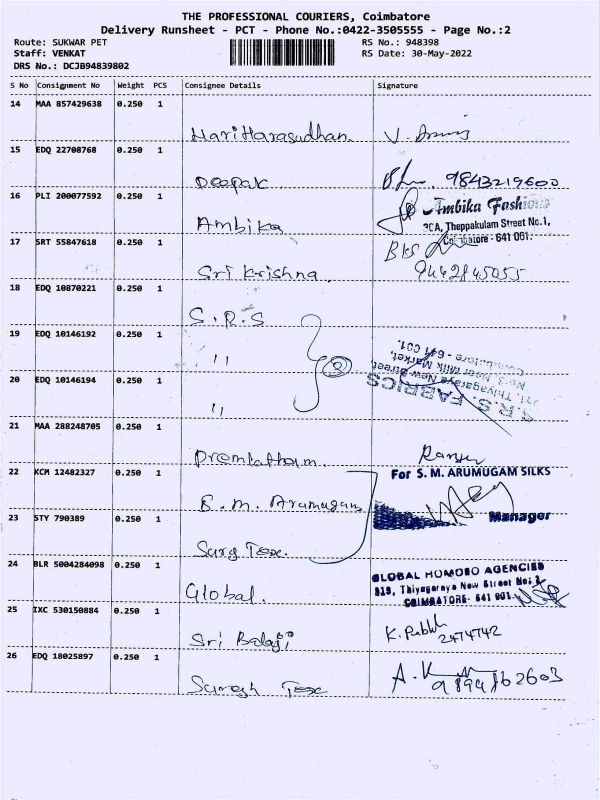 THE PROFESSIONAL COURIERS, Coimbatore
Delivery Runsheet - PCT - Phone No.:0422-3505555 - Page No.:2
Route: SUKWAR PET
RS No.: 948398
Staff: VENKAT
RS Date: 30-May-2022
DRS No.: DCJB94839802
S No Consignment No Weight PCS Consignee Details Signature
14 MAA 857429638 0.250 1
Hari Harasudhan
15 EDQ 22708768 0.250 1
Deepak 9843219600
16 PLI 200077592 0.250 1
Ambika Fashions
Ambika 3CA, Theppakulam Street No.1,
Coimbatore - 641 001.
17 SRT 55847618 0.250 1
BKS
Sri Krishna 9442845055
18 EDQ 10870221 0.250 1
S.R.S
19 EDQ 10146192 0.250 1
" 3
20 EDQ 10146194 0.250 1
"
S.R.S. FABRICS
Thiyagaraya New Street,
Market,
Coimbatore - 641 001.
21 MAA 288248705 0.250 1
Premlatham
22 KCM 12482327 0.250 1
For S. M. ARUMUGAM SILKS
S. M. Arumugam
23 STY 790389 0.250 1
Manager
Surg Tex.
24 BLR 5004284098 0.250 1
GLOBAL HOMOEO AGENCIES
319, Thiyagaraya New Street No: 2
Global. COIMBATORE - 641 001.
25 IXC 530150884 0.250 1
Sri Balaji 2474742
26 EDQ 18025897 0.250 1
Suresh Tex 9894862603